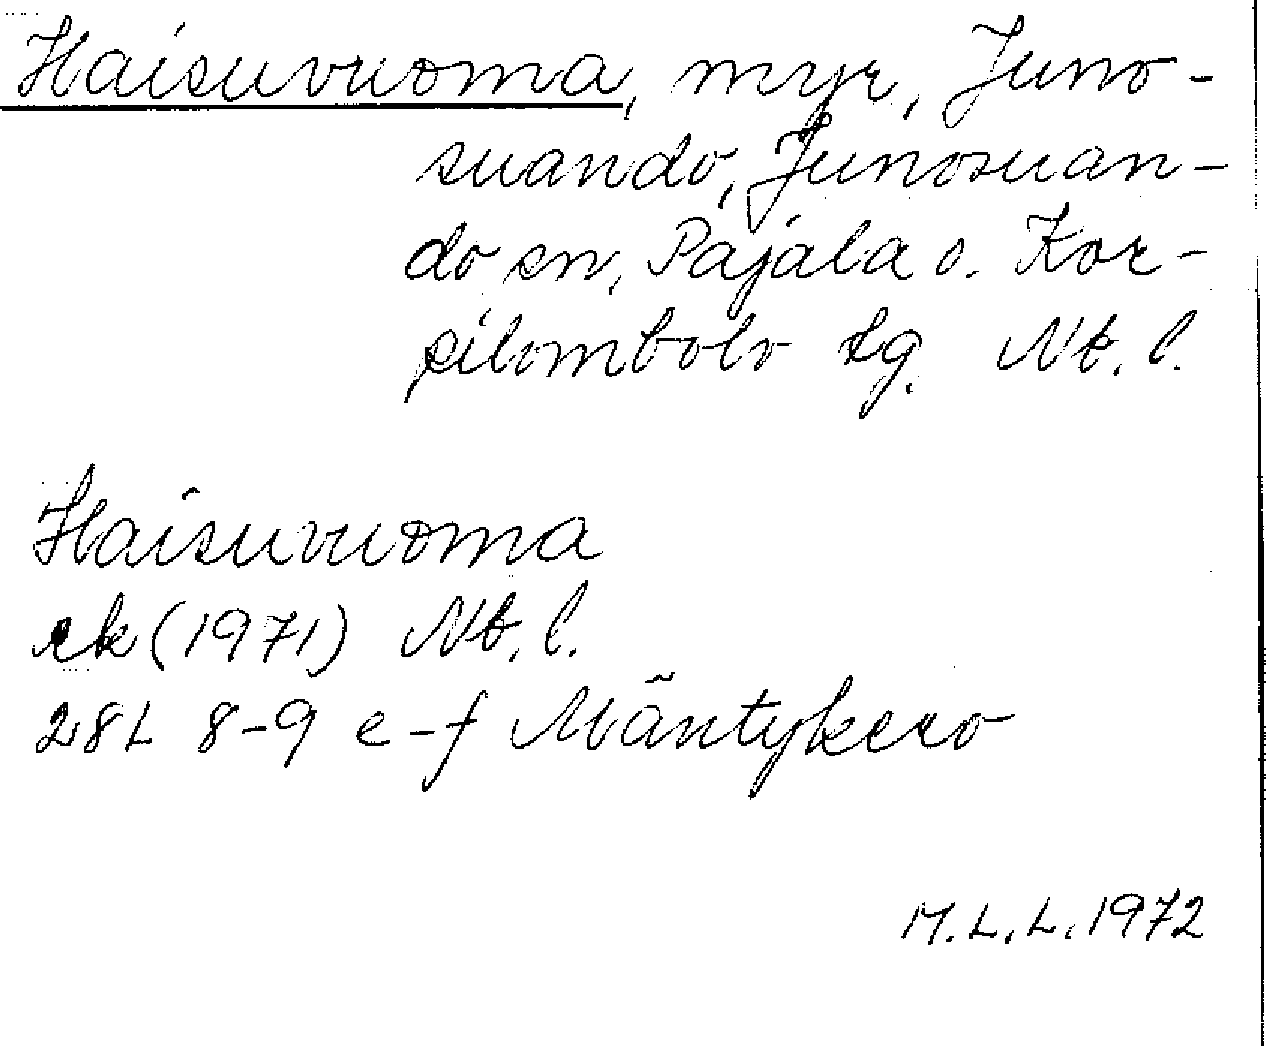 Haisuvuoma, myr, Juno-
suando, Junosuan-
do sn, Pajala o. Kor-
pilombolo tg. Nb. l.
Haisuvuoma
ek (1971) Nb. l.
28L 8-9 e-f Mäntykero
M.L.L. 1972